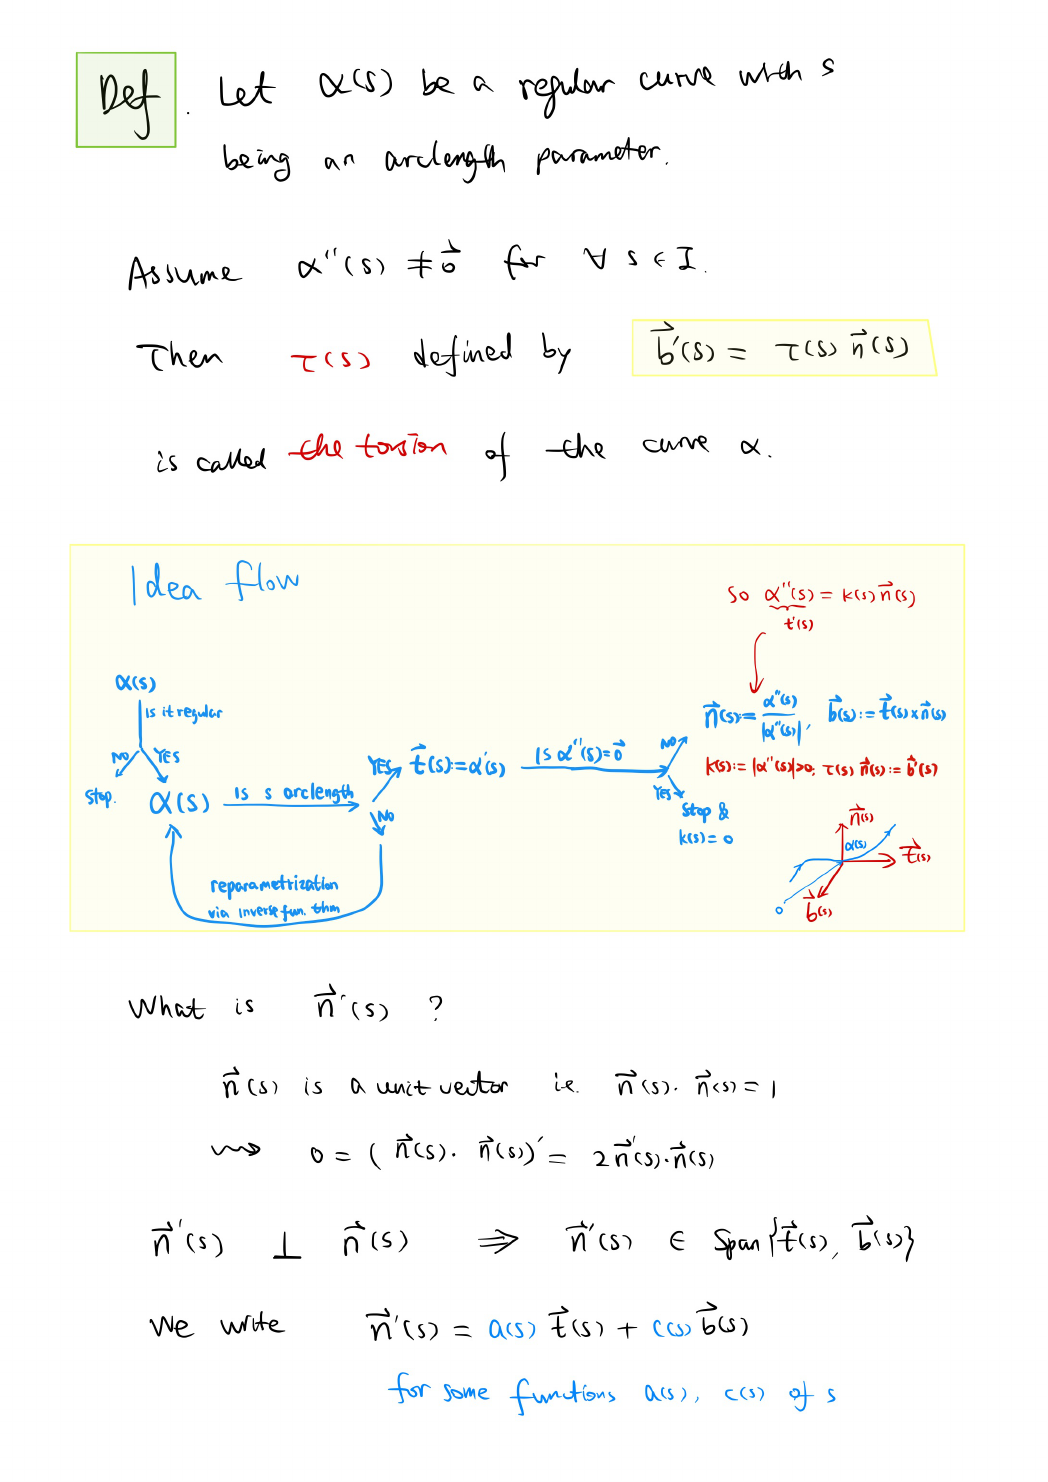 Def. Let α(s) be a regular curve with s
being an arclength parameter.
Assume α''(s) ≠ 0⃗ for ∀ s ∈ I.
Then τ(s) defined by b⃗'(s) = τ(s) n⃗(s)
is called the torsion of the curve α.
Idea flow
So α''(s) = k(s) n⃗(s)
t'(s)
α(s)
is it regular
NO YES
Stop.
α(s)
is s arclength
YES
NO
reparametrization
via inverse fun. thm
t⃗(s):=α'(s)
Is α''(s)=0⃗
NO
n⃗(s):= α''(s)/|α''(s)|, b⃗(s):= t⃗(s)×n⃗(s)
k(s):= |α''(s)|>0, τ(s) n⃗(s):= b⃗'(s)
YES
Stop &
k(s)= 0
n⃗(s)
α(s)
t⃗(s)
b⃗(s)
0
What is n⃗'(s) ?
n⃗(s) is a unit vector i.e. n⃗(s)· n⃗(s) = 1
⇝ 0 = ( n⃗(s)· n⃗(s))' = 2n⃗'(s)·n⃗(s)
n⃗'(s) ⊥ n⃗(s) ⇒ n⃗'(s) ∈ Span{t⃗(s), b⃗(s)}
We write n⃗'(s) = a(s) t⃗(s) + c(s) b⃗(s)
for some functions a(s), c(s) of s